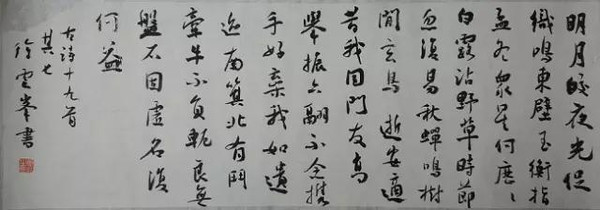 明月皎夜光促
織鳴東壁玉衡指
孟冬衆星何歷〻
白露沾野草時節
忽復易秋蟬鳴樹
間玄鳥逝安適
昔我同門友高
舉振六翮不念攜
手好棄我如遺
跡南箕北有鬥
牽牛不負軛良無
盤石固虛名復
何益
古诗十九首
其七
徐雲峯書